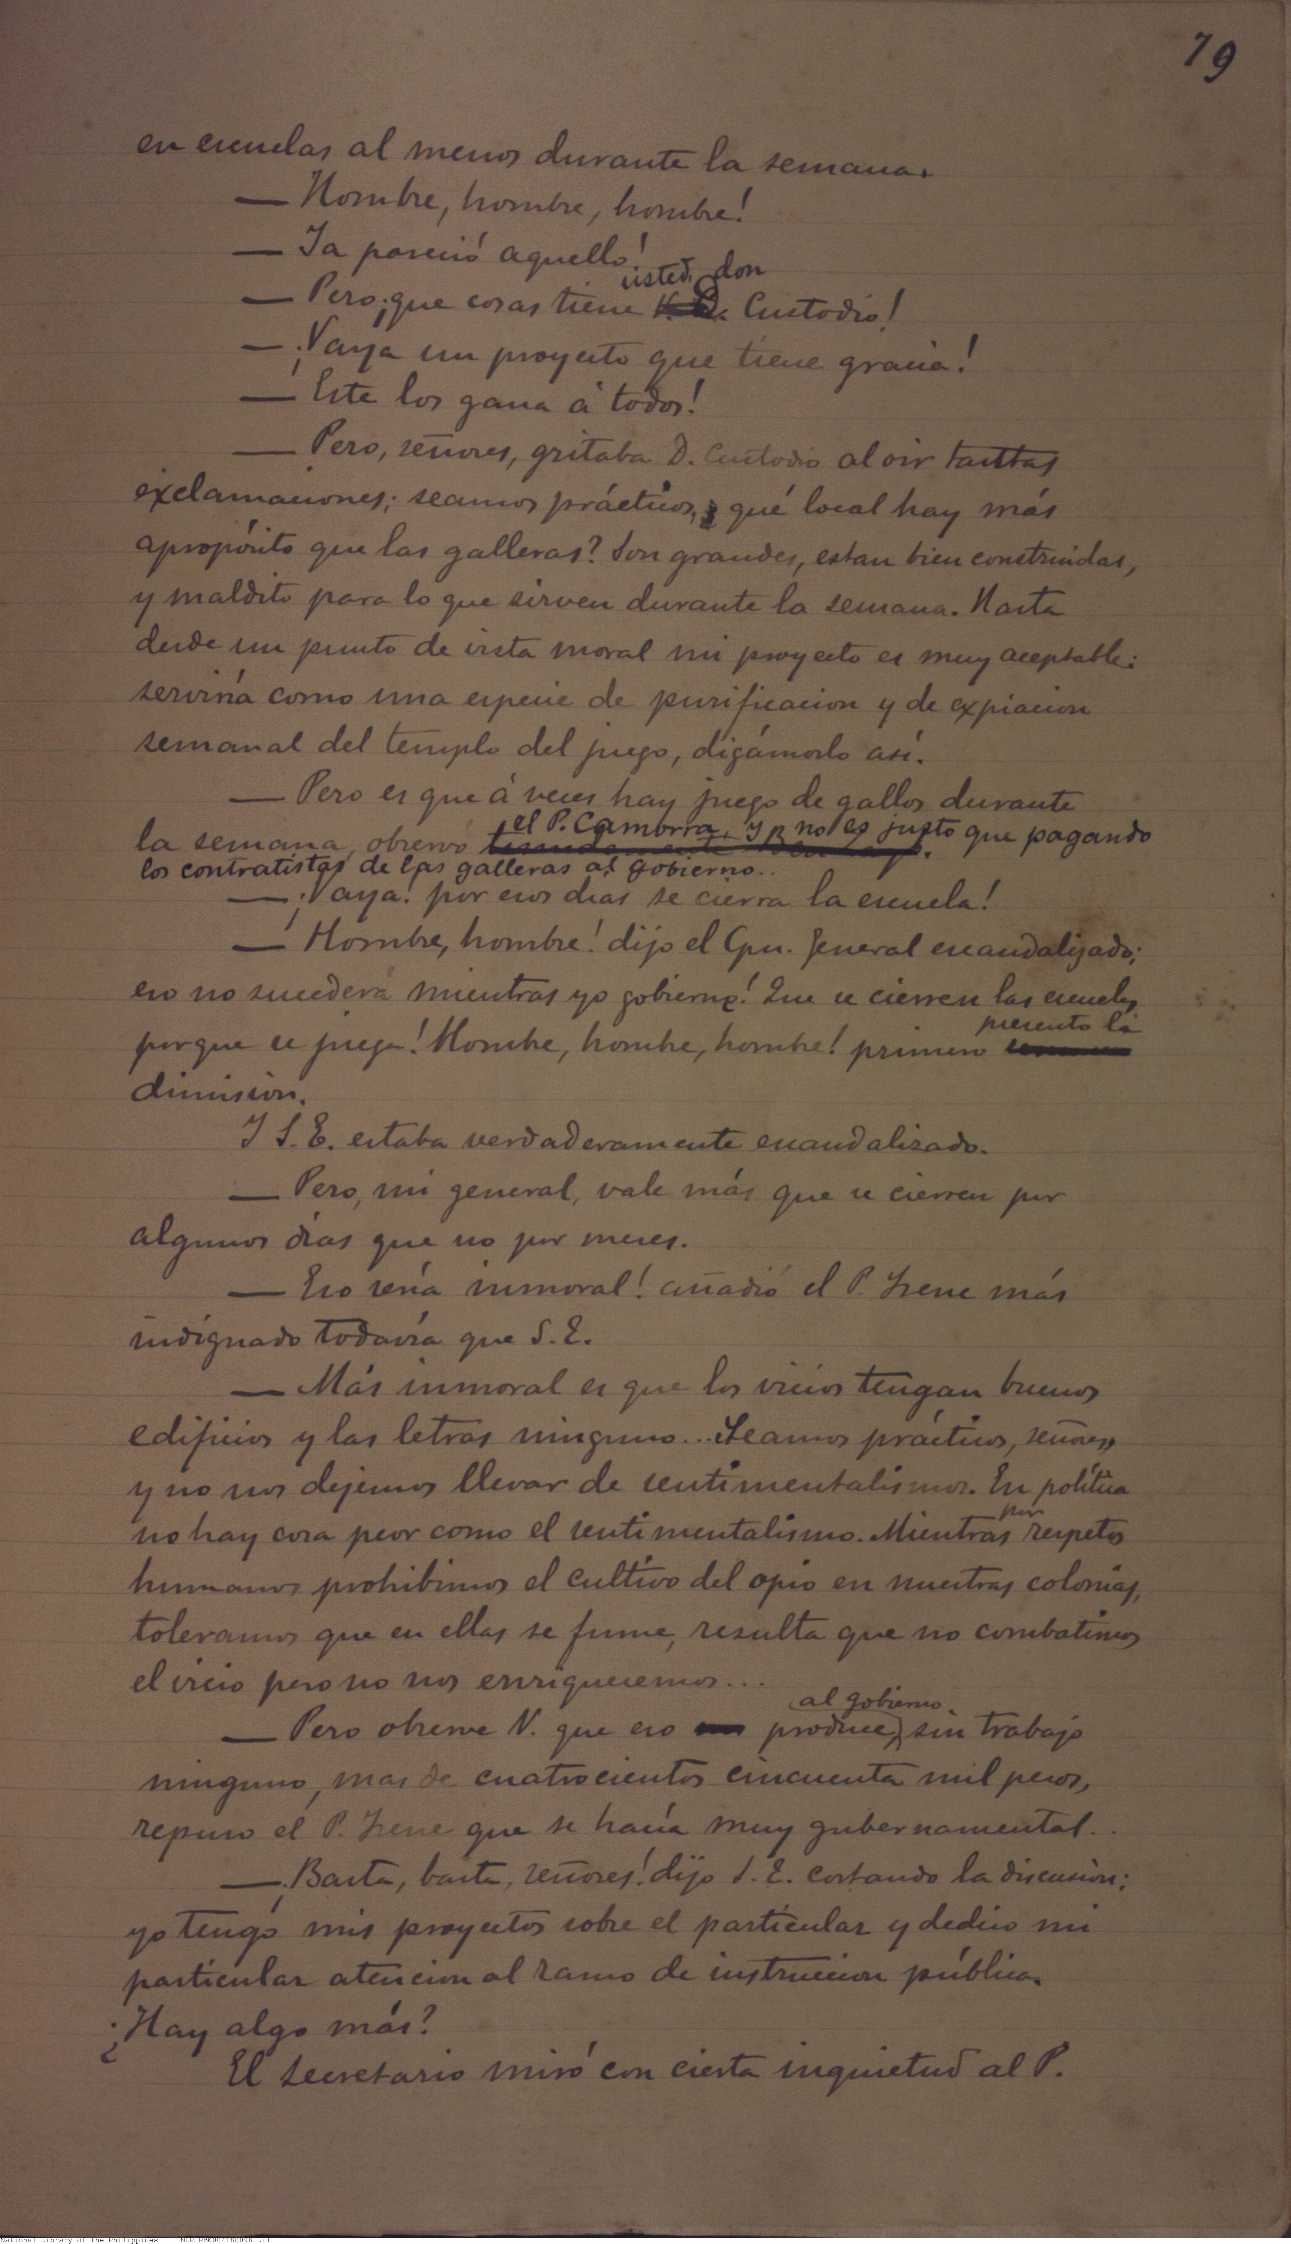 79
en escuelas al menos durante la semana.
— Hombre, hombre, hombre!
— Ya pareció aquello!
usted, don
— Pero ¡que cosas tiene Custodio!
— ¡Vaya un proyecto que tiene gracia!
— Este los gana á todos!
— Pero, señores, gritaba D. Custodio al oir tantas
exclamaciones; seamos prácticos, qué local hay más
apropósito que las galleras? Son grandes, estan bien construidas,
y maldito para lo que sirven durante la semana. Hasta
desde un punto de vista moral mi proyecto es muy aceptable:
serviría como una especie de purificacion y de expiacion
semanal del templo del juego, digámoslo así.
— Pero es que á veces hay juego de gallos durante
el P. Camorra, y no es justo que pagando
la semana, observó
los contratistas de las galleras al gobierno..
— ¡Vaya! por esos dias se cierra la escuela!
— Hombre, hombre! dijo el Cpn. General escandalizado;
eso no sucederá mientras yo gobierne! Que se cierren las escuelas
presento la
porque se juega! Hombre, hombre, hombre! primero
dimision.
Y S. E. estaba verdaderamente escandalizado.
— Pero, mi general, vale más que se cierren por
algunos dias que no por meses.
— Eso sería inmoral! añadió el P. Irene más
indignado todavía que S. E.
— Más inmoral es que los vicios tengan buenos
edificios y las letras ninguno... Seamos prácticos, señores,
y no nos dejemos llevar de sentimentalismos. En política
por
no hay cosa peor como el sentimentalismo. Mientras respetos
humanos prohibimos el cultivo del opio en nuestras colonias,
toleramos que en ellas se fume, resulta que no combatimos
el vicio pero no nos enriquecemos...
al gobierno,
— Pero observe V. que eso produce, sin trabajo
ninguno, mas de cuatrocientos cincuenta mil pesos,
repuso el P. Irene que se hacía muy gubernamental..
— ¡Basta, basta, señores! dijo S. E. cortando la discusion;
yo tengo mis proyectos sobre el particular y dedico mi
particular atencion al ramo de instruccion pública.
¿Hay algo más?
El secretario miró con cierta inquietud al P.
National Library of the Philippines